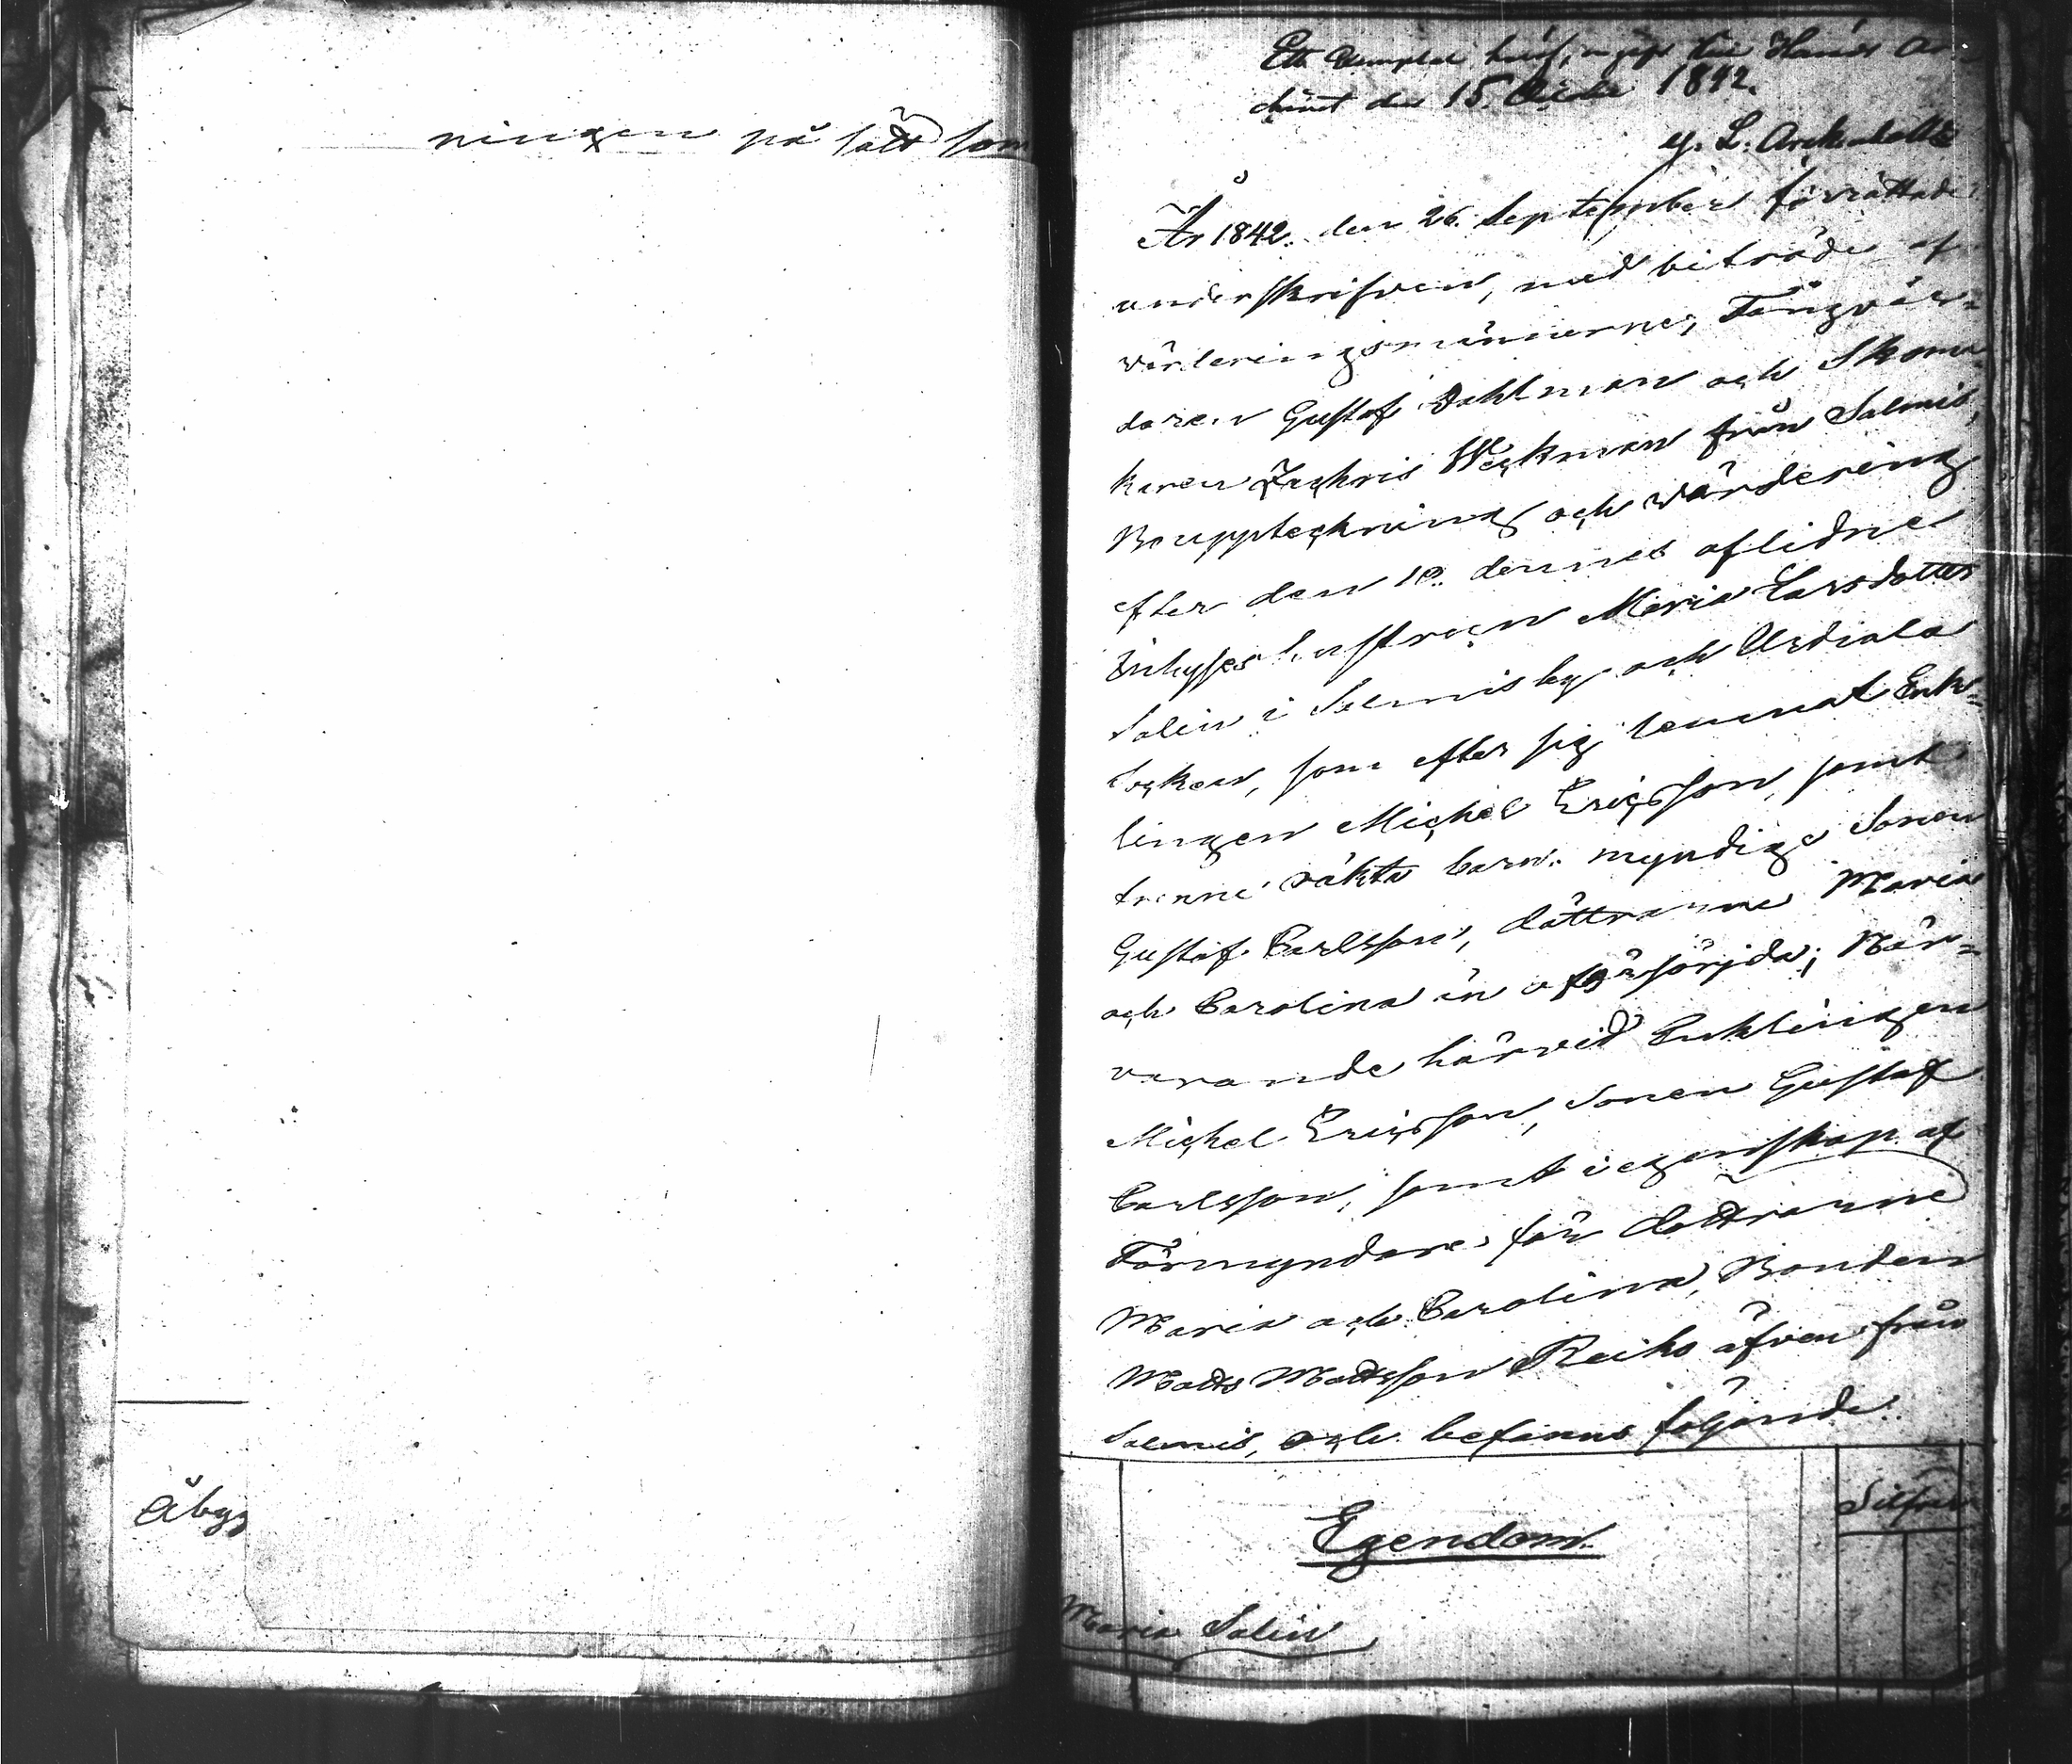 ningen på sätt som
Åbys
Ett Exemplar häraf, ingift till Härads Ar-
chivet den 15. Octobr 1842.
År 1842. den 26. September förrättade
underskrifven, med biträde af
värderingsmännerne, Fångvår-
daren Gustaf Dahlman och Skoma-
karen Zachris Weckman från Salmis,
Bouppteckning och värdering
efter den 10. dennes aflidne
Inhyses hustrun Maria Larsdotter
Salin i Salmis by och Urdiala
Socken, som efter sig lemnat Enk-
lingen Michel Ericsson, samt
trenne äkta barn: myndige Sonen
Gustaf Carlsson, döttrarne Maria
och Carolina än oförsörjda; När-
varande härvid Enklingen
Michel Ericsson, Sonen Gustaf
Carlsson, samt i egenskap af
Förmyndare för döttrarne
Maria och Carolina, Bonden
Matts Mattsson Reiko äfven från
Salmis, och befanns följande.
Egendom.
Silfver
Maria Salin